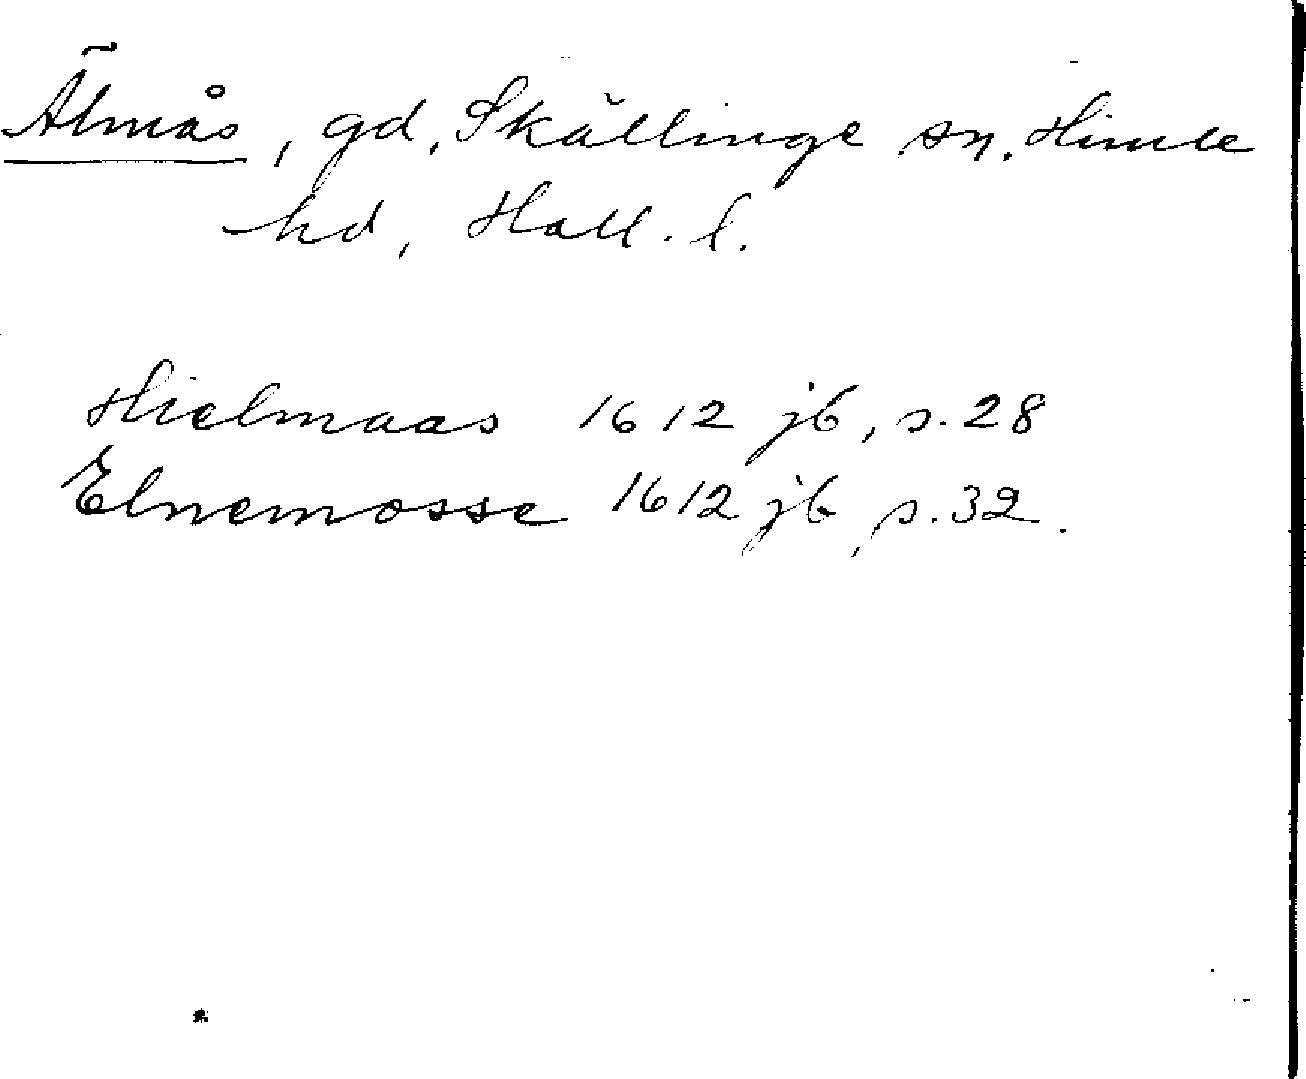 Älmås, gd, Skällinge sn. Himle
hd, Hall. l.
Hielmaas 1612 jb, s. 28
Elnemosse 1612 jb, s. 32.